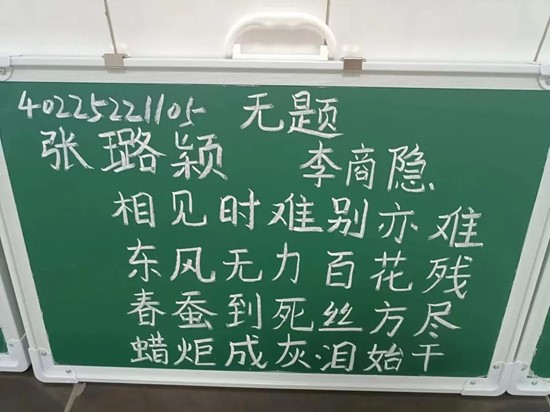 40225221105 无题
张璐颖 李商隐
相见时难别亦难
东风无力百花残
春蚕到死丝方尽
蜡炬成灰泪始干